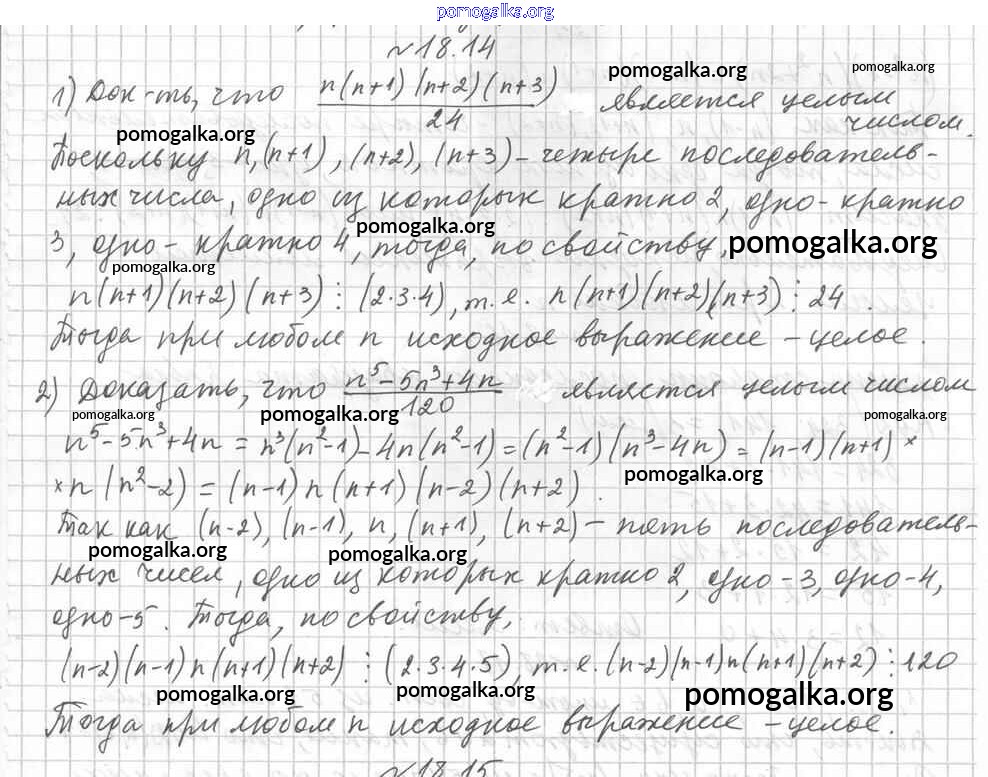 pomogalka.org
№18.14
pomogalka.org
pomogalka.org
1) Док-ть, что n(n+1)(n+2)(n+3)/24 является целым
числом.
pomogalka.org
Поскольку n, (n+1), (n+2), (n+3) – четыре последователь-
ных числа, одно из которых кратно 2, одно - кратно
pomogalka.org
3, одно - кратно 4, тогда, по свойству,
pomogalka.org
pomogalka.org
n(n+1)(n+2)(n+3) ⋮ (2·3·4), т.е. n(n+1)(n+2)(n+3) ⋮ 24.
Тогда при любом n исходное выражение – целое.
2) Доказать, что n⁵-5n³+4n/120 является целым числом
pomogalka.org
pomogalka.org
pomogalka.org
n⁵-5n³+4n = n³(n²-1)-4n(n²-1) = (n²-1)(n³-4n) = (n-1)(n+1)×
pomogalka.org
×n(n²-2) = (n-1)n(n+1)(n-2)(n+2).
Так как (n-2), (n-1), n, (n+1), (n+2) – пять последователь-
pomogalka.org
pomogalka.org
ных чисел, одно из которых кратно 2, одно -3, одно -4,
одно -5. Тогда, по свойству,
(n-2)(n-1)n(n+1)(n+2) ⋮ (2·3·4·5), т.е. (n-2)(n-1)n(n+1)(n+2) ⋮ 120
pomogalka.org
pomogalka.org
pomogalka.org
Тогда при любом n исходное выражение – целое.
№18.15